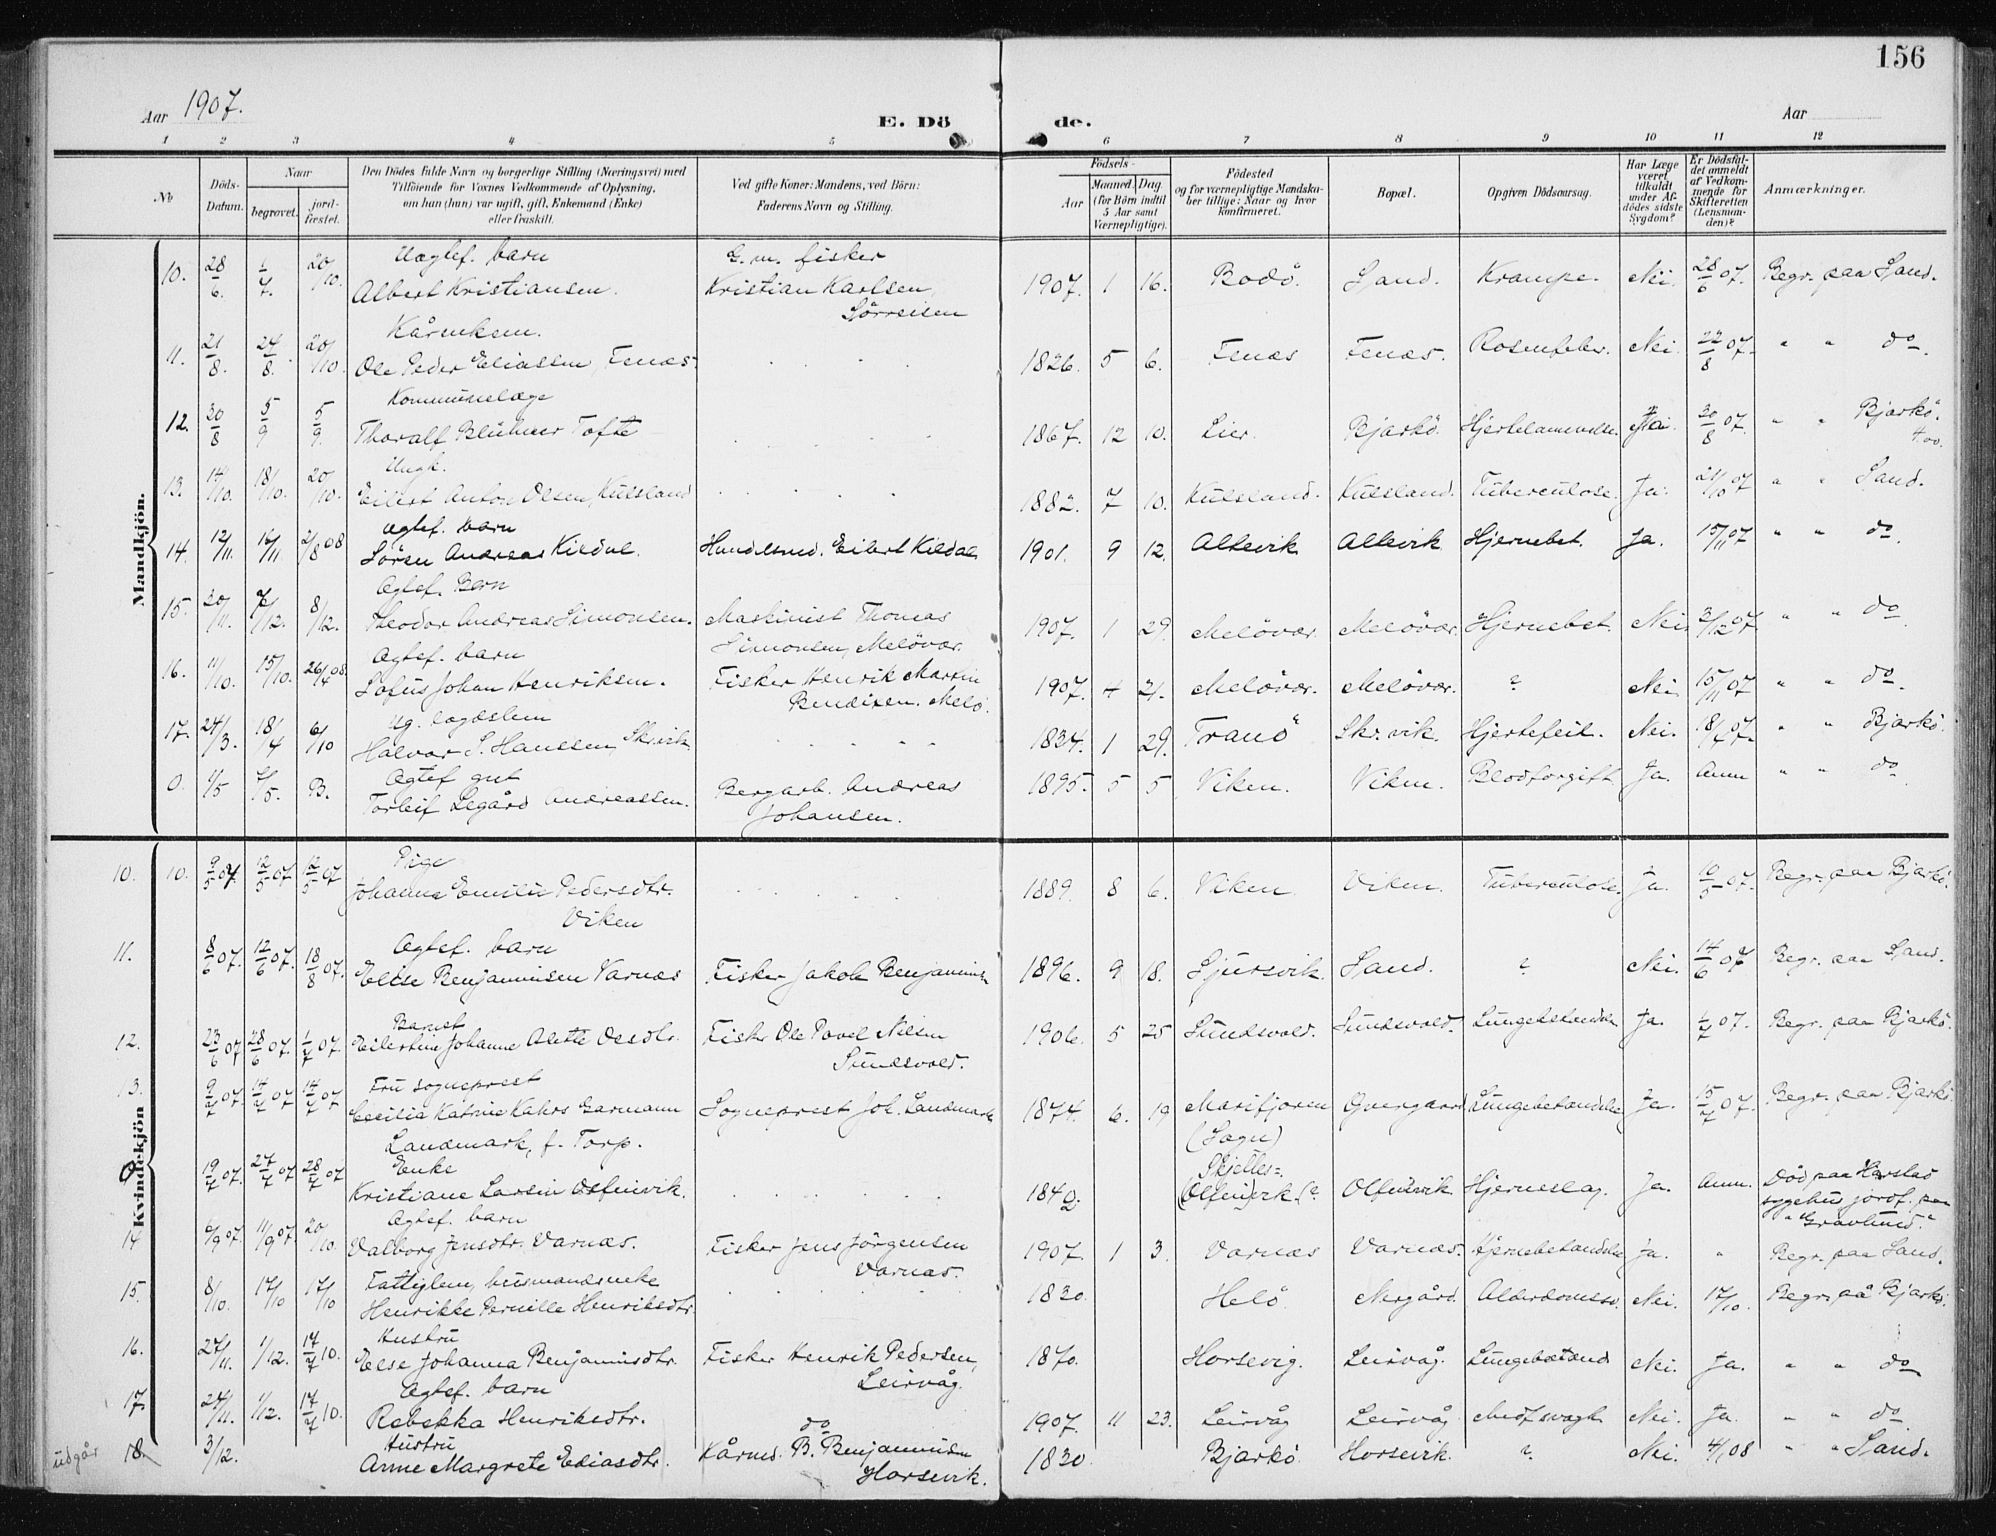 156
Aar 1907.
E. Dö
de.
Aar
1 2 3 4 5 6 7 8 9 10 11 12
No
Döds-Datum.
Naar
begravet.
jordfæstet.
Den Dödes fulde Navn og borgerlige Stilling (Næringsvei) med
Tilföiende for Voxnes Vedkommende af Oplysning,
om han (hun) var ugift, gift, Enkemand (Enke)
eller fraskilt.
Ved gifte Koner: Mandens, ved Börn:
Faderens Navn og Stilling.
Födsels-
Aar
Maaned.
Dag
(for Börn indtil
5 Aar samt
Værnepligtige).
Födested
og for værnepligtige Mandska-
ber tillige: Naar og hvor
konfirmeret.
Bopæl.
Opgiven Dödsaarsag.
Har Læge
været
tilkaldt
under Af-
dödes sidste
Sygdom?
Er Dödsfal-
det anmeldt
af Vedkom-
mende for
Skifteretten
(Lensman-
den)?
Anmærkninger.
Mandkjön.
Uægtef. barn G. m. fisker
10. 28/6. 1/7. 20/10. Albert Kristiansen. Kristian Karlsen, 1907. 1 16. Bodö. Sand. Krampe. Nei. 28/6 07. Begr. paa Sand.
Sörreisen
Kårenkem.
11. 21/8. 24/8. 20/10. Ole Peder Eliassen, Fenæs. 1826. 5 6. Fenæs Fenæs. Rosenfeber. Nei. 22/8 07. " " do.
Kommunelæge
12. 30/8 5/9 5/9. Thoralf Tofte 1867. 12 10. Lier. Bjarkö. Hjertelammelse. Ja. 30/8 07. " " Bjarkö.
Ungk.
13. 14/10. 18/10. 20/10. Eilert Anton Olsen, Kulsland 1882. 7 10. Kulsland. Kulsland. Tuberculose. Ja. 21/10 07 " " Sand.
Ægtef. barn
14. 12/11. 16/11. 2/8 08 Sören Andreas Kildal. Handelsmd. Eilert Kildal 1901. 9 12. Altevik Altevik Hjernebet. Ja. 15/11 07 " " do.
Ægtef. Barn
15. 30/11. 7/12. 8/12. Theodor Andreas Simonsen. Maskinist Thomas 1907. 1 29. Melövær. Melövær. Hjernebet. Nei. 3/12 07. " " do
Simonsen, Melövær.
Ægtef. barn
16. 11/10. 15/10. 26/4 08. Lofus Johan Henriksen. Fisker Henrik Martin 1907. 4 21. Melövær. Melövær. ? Nei. 15/11 07 " " do.
Bendixen. Melö.
Ug. lægdslem
17. 24/3. 18/4 6/10 Halvor S. Hanssen, Skr.vik 1834. 1 29. Tranö Skr.vik. Hjertefeil. Nei. 18/4 07. " " Bjarkö.
Ægtef gut
0. 1/5 B. Torleif Legård Andreassen. Bergarb. Andreas 1895. 5 5 Viken. Viken. Blodforgift. Ja. Anm " " do.
Johansen.
Kvindekjön
Pige
10. 10. 9/5 07. 12/5 07 12/5 07 Johanna Emilie Pedersdtr. 1889. 8 6. Viken Viken. Tuberculose. Ja. 10/5 07. Begr. paa Bjarkö.
Viken
Ægtef. barn
11. 8/6 07. 12/6 07. 18/8 07. Elise Benjaminsen Varnæs Fisker Jakob Benjaminsen 1896. 9 18. Sjursvik. Sand. ? Nei. 14/6 07 Begr. paa Sand.
Barnet
12. 23/6 07 28/6 07. 1/7 07. Eilertine Johanne Alette Olesdtr. Fisker Ole Povel Nilsen 1906. 5 25 Sundsvold. Sundsvold. Lungebetændelse Ja. 1/7 07. Begr. paa Bjarkö.
Sundsvold.
Fru sogneprest
13. 9/7 07. 14/7 07 14/7 07 Cecilia Katrine Kahrs Garmann Sogneprest Joh. Landmark 1874. 6. 19 Marifjoren Övergaard Lungebetændelse Ja. 15/7 07. Begr. paa Bjarkö.
Landmark, f. Torp. (Sogn)
Enke
19/7 07. 27/7 07 28/7 07 Kristiane Larsen Olfinvik. 1840. Olfinvik. Hjerneslag. Ja. Anm. Död paa Harstad
sygehus jordf. paa
"Gravlund."
Ægtef. barn
14 6/9 07. 11/9 07. 20/10. Valborg Jensdtr. Varnæs. Fisker Jens Jörgensen 1907. 1 3. Varnæs Varnæs. Hjernebetændelse Ja. " Begr. paa Sand.
Varnæs.
Fattiglem, husmandsenke
15. 8/10. 17/10 17/10 Henrikke Pernille Henriksdtr 1830. Helö Nergård. Alderdomssv. Nei. 17/10. Begr. på Bjarkö.
Hustru
16. 27/11. 1/12. 17/7 10. Else Johanna Benjaminsdtr. Fisker Henrik Pedersen, 1870. Horsevig. Leirvåg. Lungebetænd. Nei. Ja. " " do
Leirvåg.
Ægtef. barn
17. 24/11. 1/12. 17/7 10. Rebekka Henriksdtr. do 1907. 11 23. Leirvåg Leirvåg. Medf. svagh. Nei. Ja. " " do
Hustru
udgår 18. 3/12. Anne Margrete Eliasdtr. Kårmd. B. Benjaminsen 1830 Bjarkö Horsevik. ? Nei. 4/1 08 " " Sand.
Horsevik.